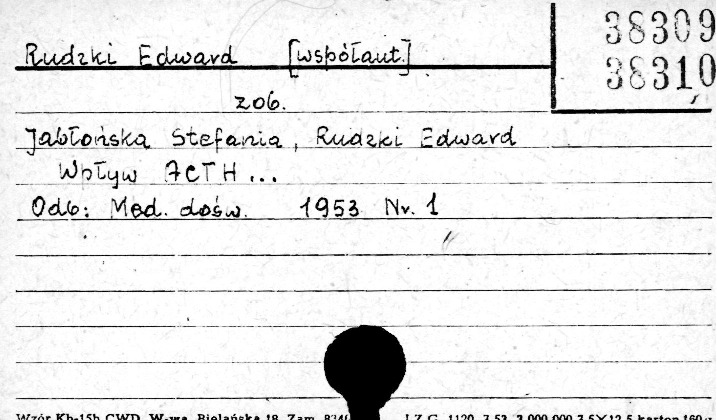 38309
38310
Rudzki Edward [współaut.]
zob.
Jabłońska Stefania, Rudzki Edward
Wpływ ACTH...
Odb: Med. dośw. 1953 Nr. 1
Wzór Kb-15b CWD, W-wa, Bielańska 18, Zam. 834 LZG. 1120 7.53 3.000.000 7,5×12,5 karton 160 g